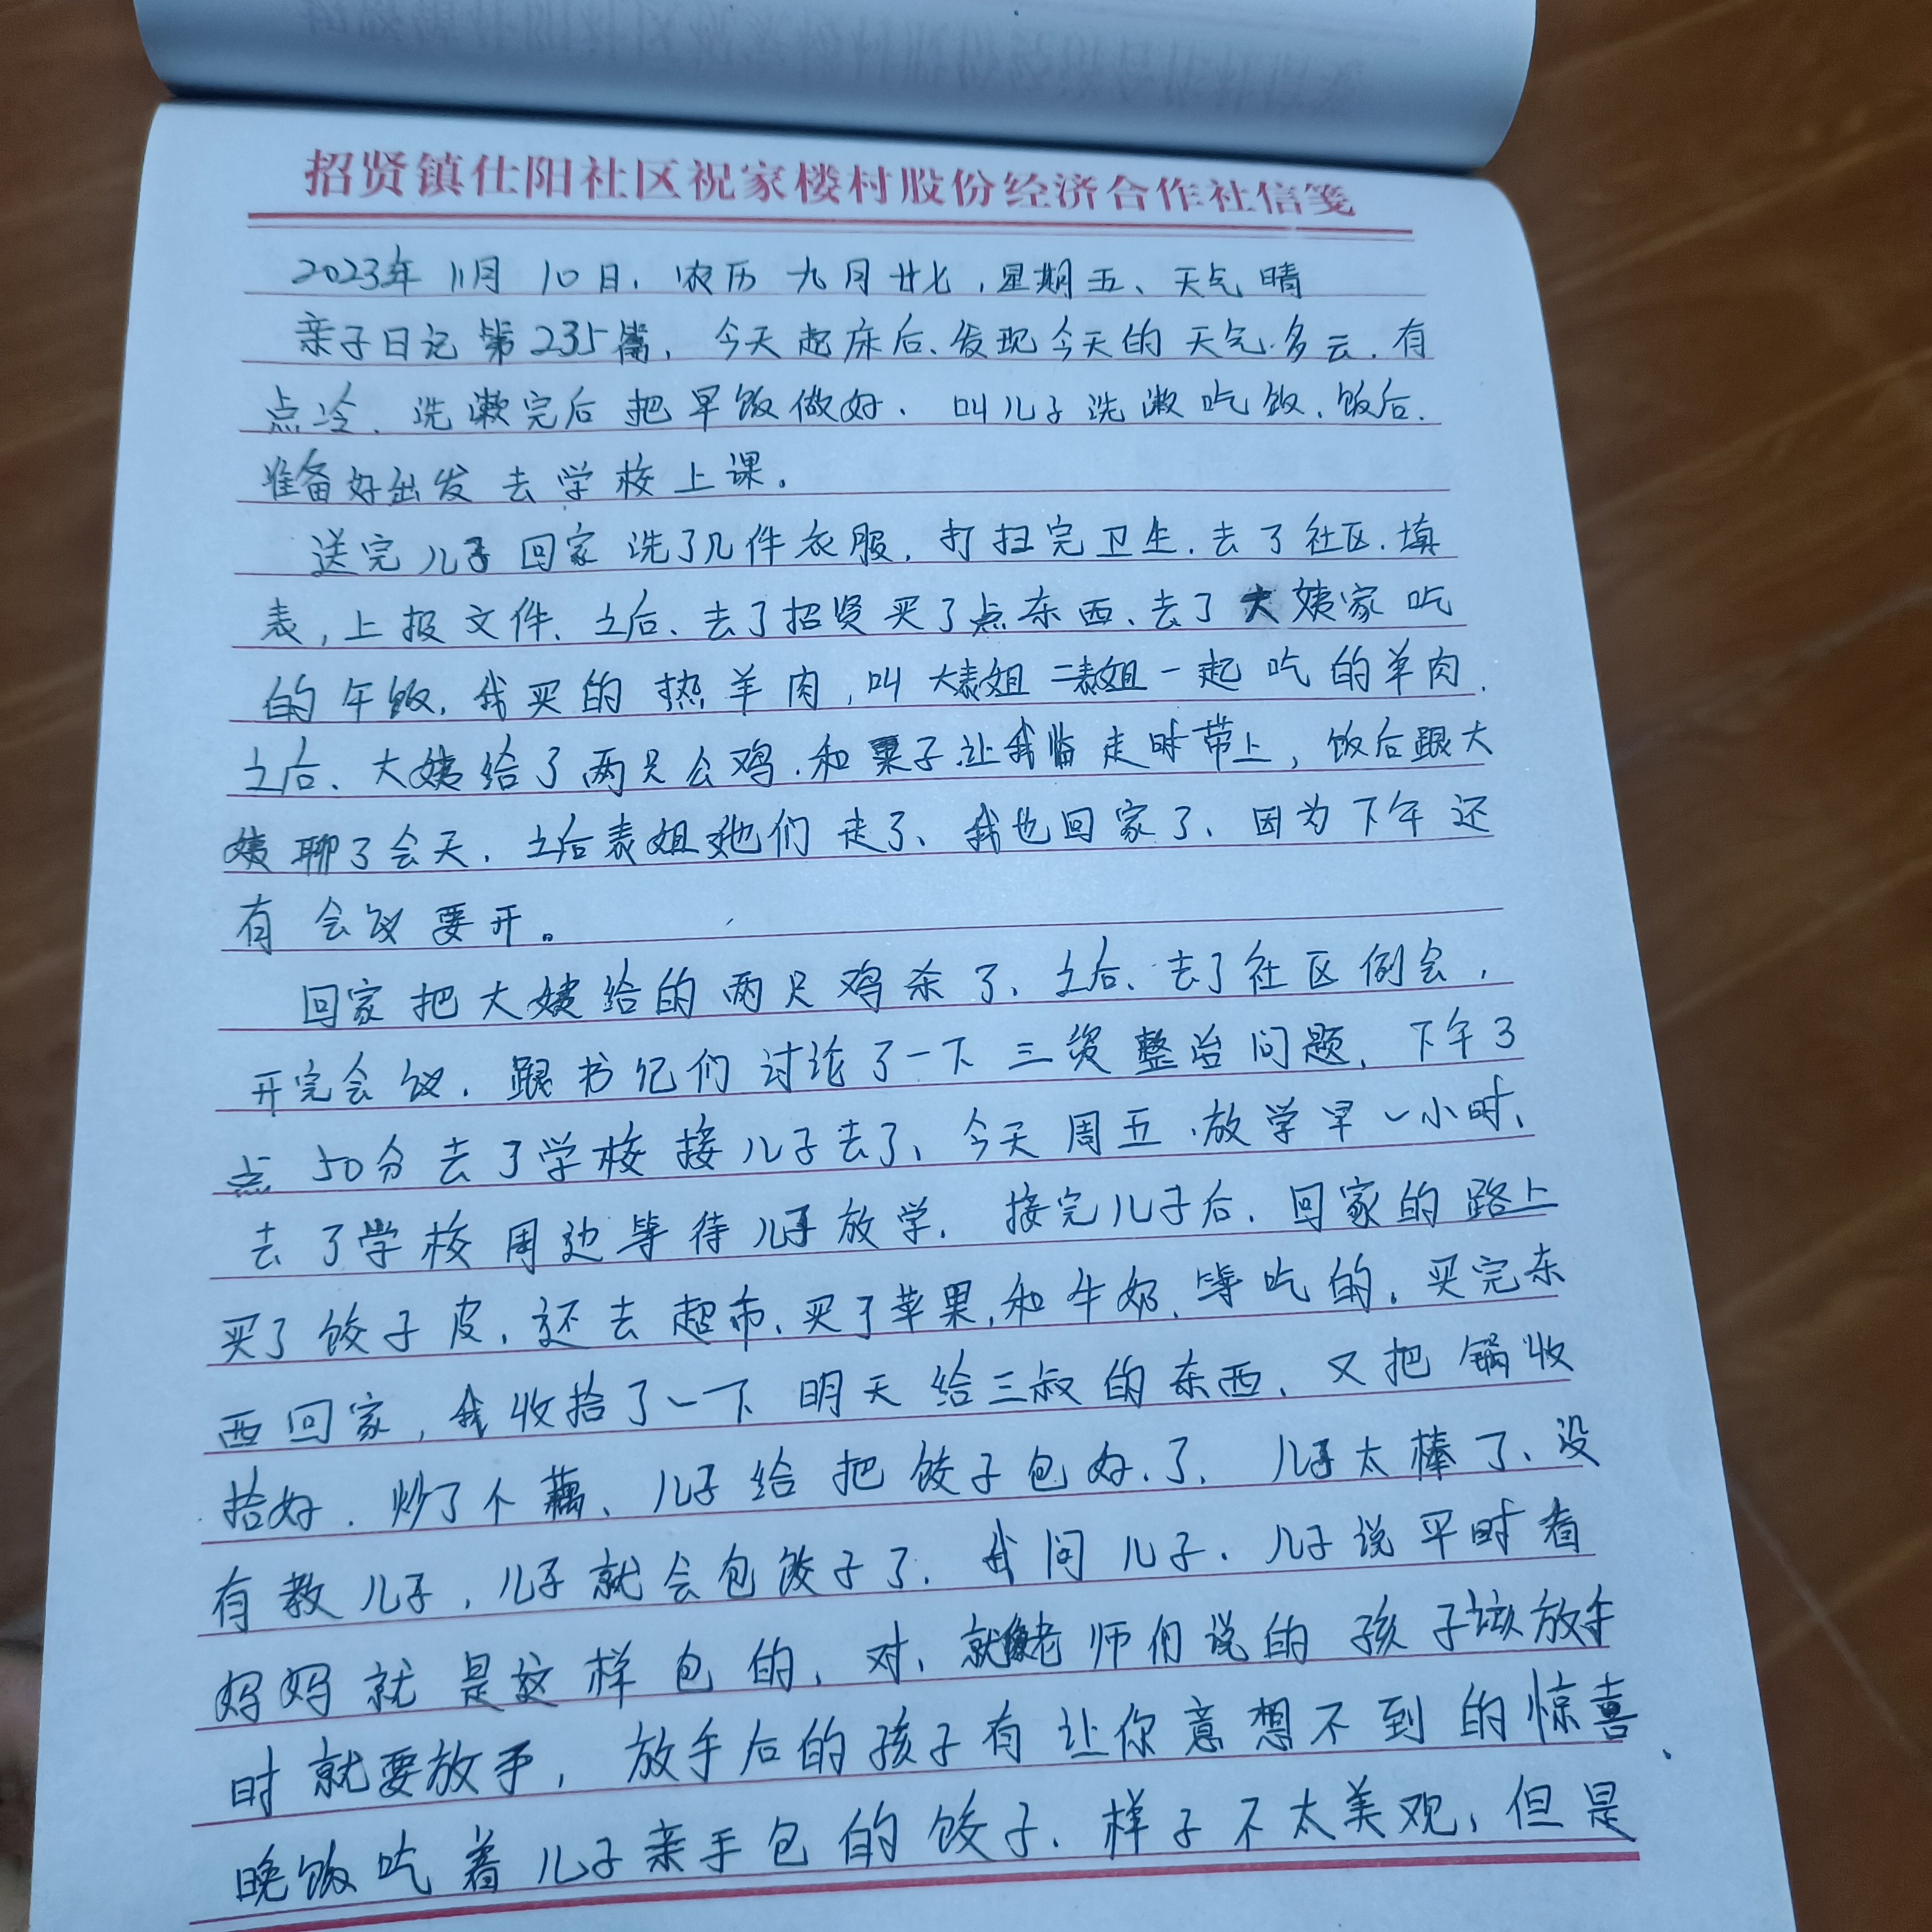 招贤镇仕阳社区祝家楼村股份经济合作社信笺
2023年11月10日,农历九月廿七,星期五、天气晴
亲子日记第235篇,今天起床后、发现今天的天气多云.有
点冷、洗漱完后把早饭做好、叫儿子洗漱吃饭.饭后.
准备好出发去学校上课。
送完儿子回家洗了几件衣服,打扫完卫生.去了社区.填
表,上报文件、之后、去了招贤买了点东西、去了大姨家吃
的午饭,我买的热羊肉,叫大表姐二表姐一起吃的羊肉.
之后、大姨给了两只公鸡.和栗子.让我临走时带上,饭后跟大
姨聊了会天,之后表姐她们走了、我也回家了、因为下午还
有会议要开。
回家把大姨给的两只鸡杀了、之后、去了社区例会,
开完会议.跟书记们讨论了一下三资整治问题,下午3
点50分去了学校接儿子去了、今天周五.放学早一小时、
去了学校周边等待儿子放学.接完儿子后.回家的路上
买了饺子皮,还去超市、买了苹果,和牛奶、等吃的,买完东
西回家,我收拾了一下明天给三叔的东西、又把锅收
拾好.炒了个藕、儿子给把饺子包好.了、儿子太棒了、没
有教儿子,儿子就会包饺子了.我问儿子.儿子说平时看
妈妈就是这样包的,对,就像老师们说的孩子该放手
时就要放手,放手后的孩子有让你意想不到的惊喜、
晚饭吃着儿子亲手包的饺子.样子不太美观,但是